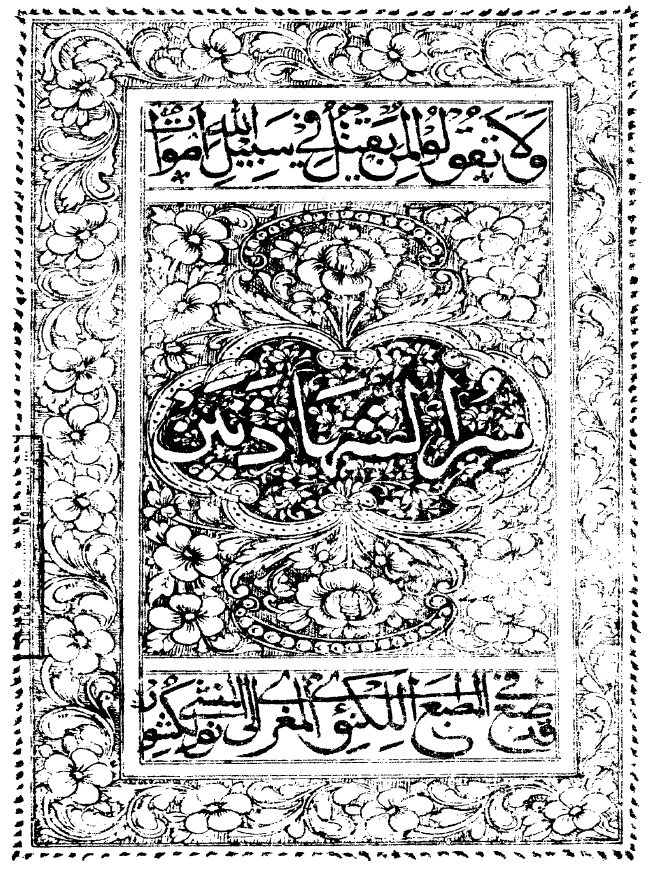 وَلَا تَقُوْلُوْا لِمَنْ يُقْتَلُ فِيْ سَبِيْلِ اللهِ اَمْوَاتٌ
سِرُّ الشَّهَادَتَيْنِ
قد طبع في المطبع اللكنوي المعزى الى المنشي نولكشور